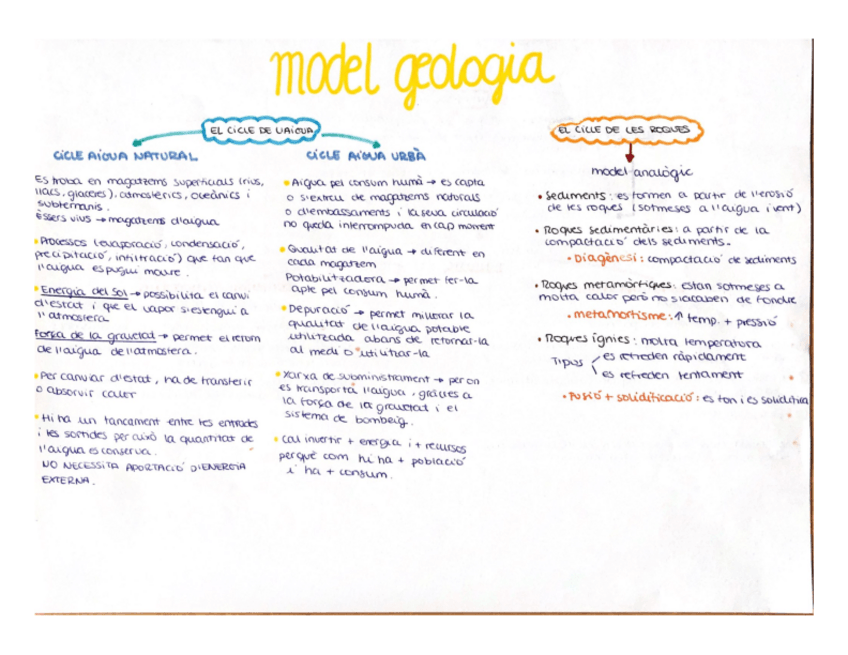 model geologia
EL CICLE DE L'AIGUA
CICLE AIGUA NATURAL
Es troba en magatzems superficials (rius,
llacs, glaceres), atmosfèrics, oceànics i
subterranis.
Éssers vius → magatzems d'aigua
• Processos (evaporació, condensació,
precipitació, infiltració) que fan que
l'aigua es pugui moure.
• Energia del Sol → possibilita el canvi
d'estat i que el vapor s'estengui a
l'atmosfera
Força de la gravetat → permet el retorn
de l'aigua de l'atmosfera.
• Per canviar d'estat, ha de transferir
o absorvir calor
• Hi ha un tancament entre les entrades
i les sortides per això la quantitat de
l'aigua es conserva.
NO NECESSITA APORTACIÓ D'ENERGIA
EXTERNA.
CICLE AIGUA URBÀ
• Aigua pel consum humà → es capta
o s'extreu de magatzems naturals
o d'embassaments i la seva circulació
no queda interrompuda en cap moment
• Qualitat de l'aigua → diferent en
cada magatzem
Potabilitzadora → permet fer-la
apte pel consum humà.
• Depuració → permet millorar la
qualitat de l'aigua potable
utilitzada abans de retornar-la
al medi o utilitzar-la
• Xarxa de subministrament → per on
es transporta l'aigua, gràcies a
la força de la gravetat i el
sistema de bombeig.
• Cal invertir + energia i + recursos
perquè com hi ha + població
i ha + consum.
EL CICLE DE LES ROQUES
model analògic
• Sediments: es formen a partir de l'erosió
de les roques (sotmeses a l'aigua i vent)
• Roques sedimentàries: a partir de la
compactació dels sediments.
• Diagènesi: compactació de sediments
• Roques metamòrfiques: estan sotmeses a
molta calor però no s'acaben de fondre
• metamorfisme: ↑ temp. + pressió
• Roques ígnies: molta temperatura
Tipus
es refreden ràpidament
es refreden lentament
• Fusió + solidificació: es fon i es solidifica